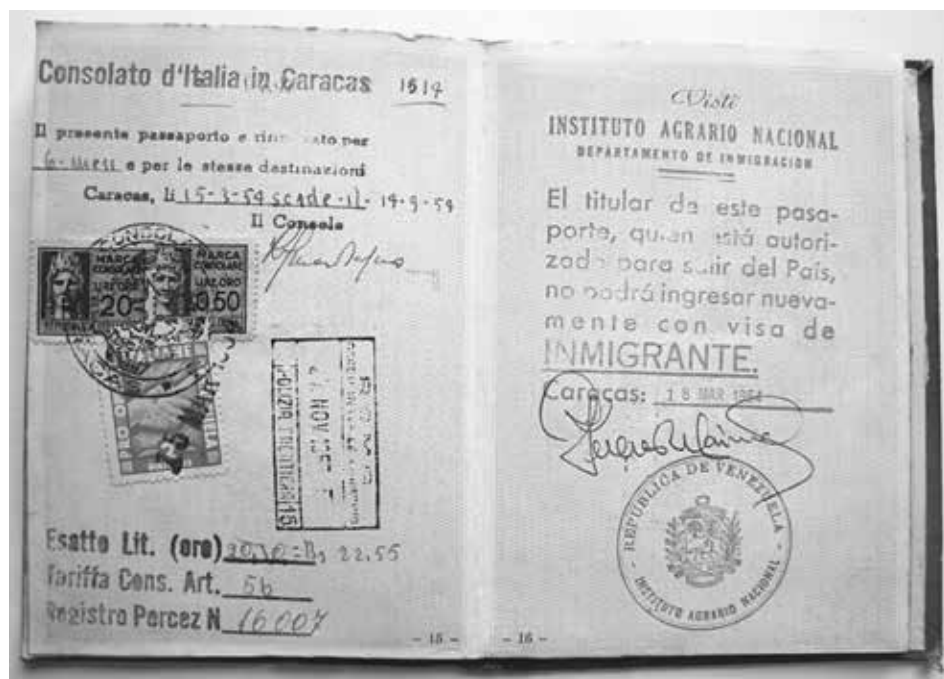 Consolato d'Italia in Caracas 1514
Il presente passaporto e per
e per le stesse destinazioni
Caracas, li 15-3-54 scade il 14-9-54
Il Console
MARCA CONSOLARE
MARCA CONSOLARE
LIRE ORO
LIRE ORO
20
0.50
NOV
POLIZIA
Esatto Lit. (oro) 20,50 = Bs 22.55
Tariffa Cons. Art. 56
Registro Percez N 16007
- 15 -
Visti
INSTITUTO AGRARIO NACIONAL
DEPARTAMENTO DE INMIGRACION
El titular de este pasa-
porte, quien está autori-
zado para salir del País,
no podrá ingresar nueva-
mente con visa de
INMIGRANTE.
Caracas: 18 MAR 1954
REPUBLICA DE VENEZUELA
INSTITUTO AGRARIO NACIONAL
- 16 -